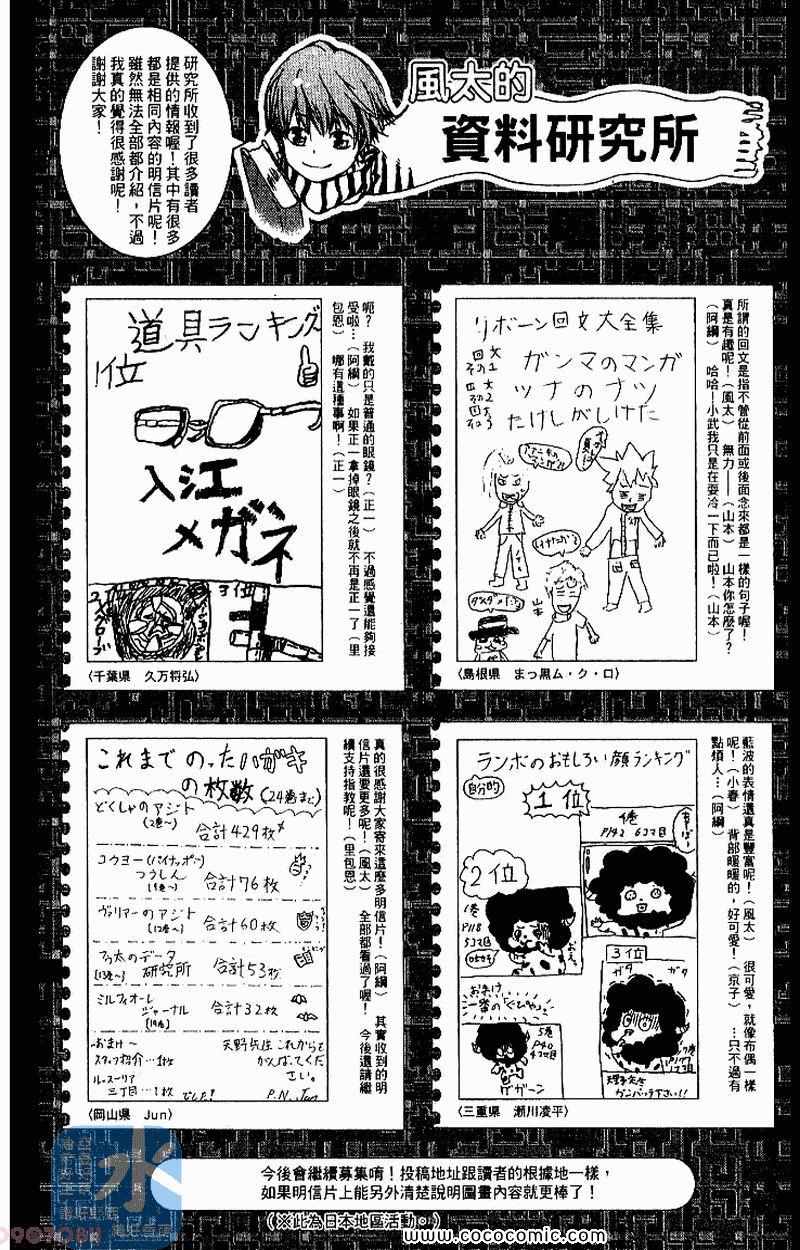 風太的
資料研究所
研究所收到了很多讀者
提供的情報喔！其中有很多
都是相同內容的明信片呢！
雖然無法全部都介紹，不過
我真的覺得很感謝呢！
謝謝大家！
所謂的回文是指不管從前面或後面念來都是一樣的句子喔！
真是有趣呢！（風太）　無力——（山本）　山本你怎麼了？
（阿綱）　哈哈！小武我只是在耍冷一下而已啦！（山本）
リボーン回文大全集
回文その1　ガンマのマンガ
回文その2　ツナのナツ
回文その3　たけしがしけた
山本
（島根県　まっ黒ム・ク・ロ）
呃？　我戴的只是普通的眼鏡？（正一）　不過感覺還能夠接
受啦…（阿綱）　如果正一拿掉眼鏡之後就不再是正一了（里
包恩）　哪有這種事啊！（正一）
道具ランキング
1位
入江
メガネ
3位
（千葉県　久万将弘）
藍波的表情還真是豐富呢！（風太）　很可愛，就像布偶一樣
呢！（小春）　背部暖暖的，好可愛！（京子）　…只不過有
點煩人…（阿綱）
ランボのおもしろい顔ランキング
自分的
1位
2位
1巻
P118
5コマ目
3位
ガタ
ガタ
おまけ
5巻
P40
4コマ目
ガガーン
（三重県　瀬川凌平）
真的很感謝大家寄來這麼多明信片！（阿綱）　其實收到的明
信片還要更多呢！（風太）　全部都看過了喔！　今後還請繼
續支持指教呢！（里包恩）
これまでのったハガキ
の枚数（24巻まで）
どくしゃのアジト
（2巻〜）　合計429枚
コウヨー（パイナッポー）
つうしん
（9巻〜）　合計76枚
ヴァリアーのアジト
（12巻〜）　合計60枚
フゥ太のデータ
（13巻〜）　研究所　合計53枚
ミルフィオーレ
ジャーナル　合計32枚
（19巻）
おまけ〜
スタッフ紹介…1枚
ルッスーリア
三丁目…1枚　でした！
天野先生これからも
がんばってくだ
さい。
P.N. Jun
（岡山県　Jun）
今後會繼續募集唷！投稿地址跟讀者的根據地一樣，
如果明信片上能另外清楚說明圖畫內容就更棒了！
（※此為日本地區活動。）
www.cococomic.com
水